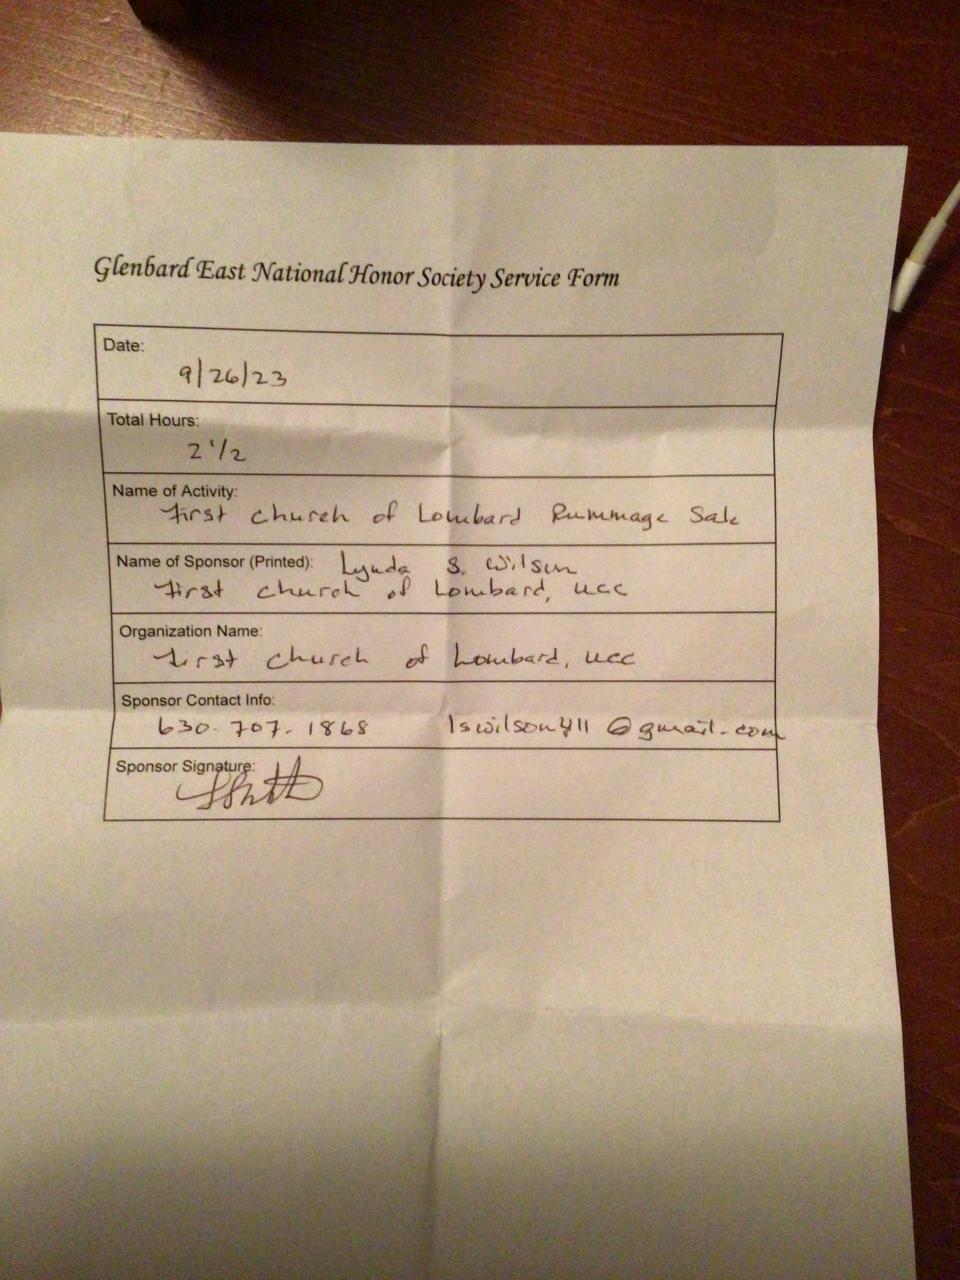 Glenbard East National Honor Society Service Form
Date:
9/26/23
Total Hours:
2 1/2
Name of Activity:
First Church of Lombard Rummage Sale
Name of Sponsor (Printed): Lynda S. Wilson
First Church of Lombard, UCC
Organization Name:
First Church of Lombard, UCC
Sponsor Contact Info:
630.707.1868 lswilson411@gmail.com
Sponsor Signature: